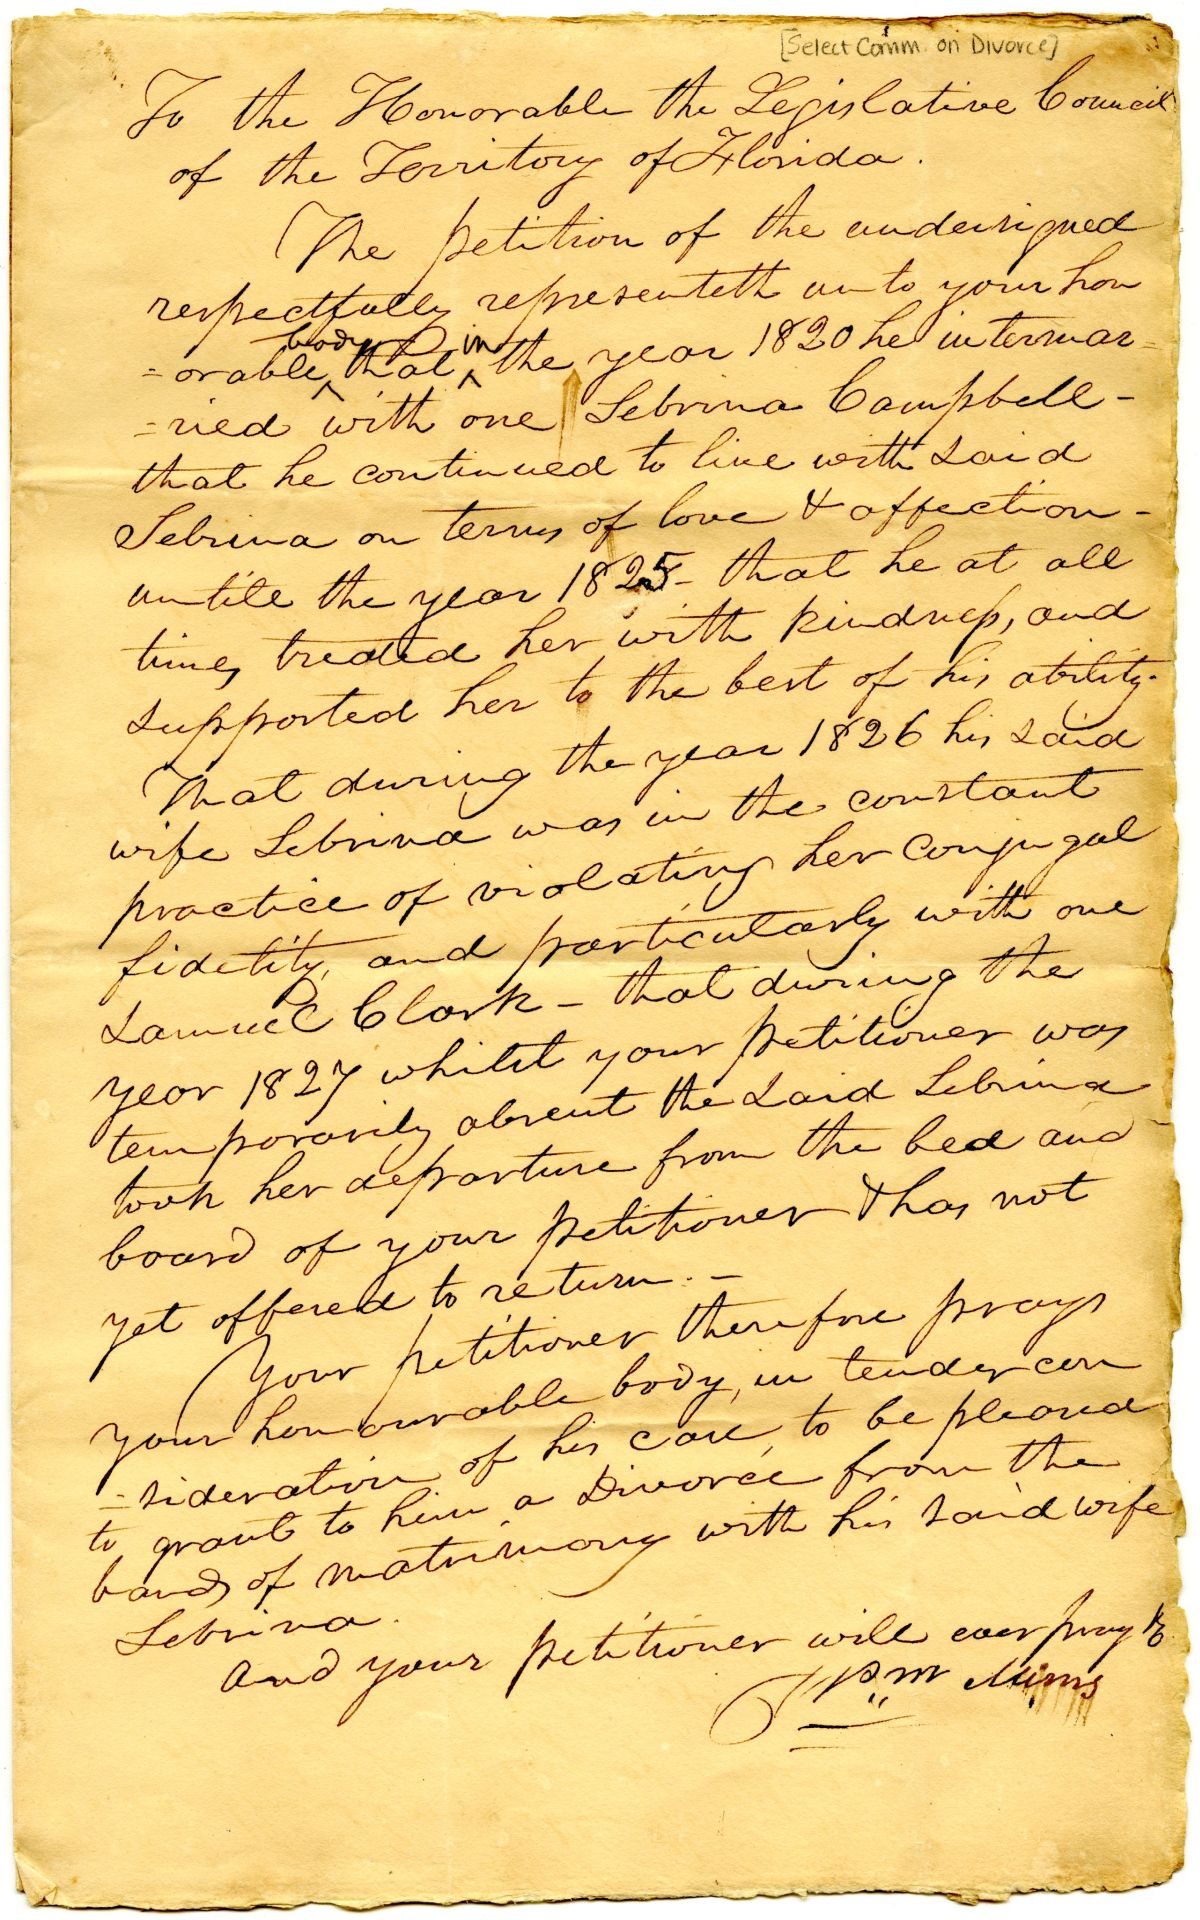 [Select Comm. on Divorce]
To the Honorable the Legislative Council
of the Territory of Florida.
The petition of the undersigned
respectfully representeth unto your hon
body in
=orable ^ that ^ the year 1820 he intermar=
=ried with one Sebrina Campbell -
that he continued to live with said
Sebrina on terms of love & affection -
untill the year 1825 - that he at all
times treated her with kindness, and
supported her to the best of his ability.
That during the year 1826 his said
wife Sebrina was in the constant
practice of violating her conjugal
fidelity, and particularly with one
Samuel Clark - that during the
year 1827 whilst your petitioner was
temporarily absent the said Sebrina
took her departure from the bed and
board of your petitioner & has not
yet offered to return. -
Your petitioner therefore prays
your honourable body, in tender con
=sideration of his case, to be pleased
to grant to him a Divorce from the
bands of matrimony with his said wife
Sebrina.
And your petitioner will ever pray &
Wm Mims